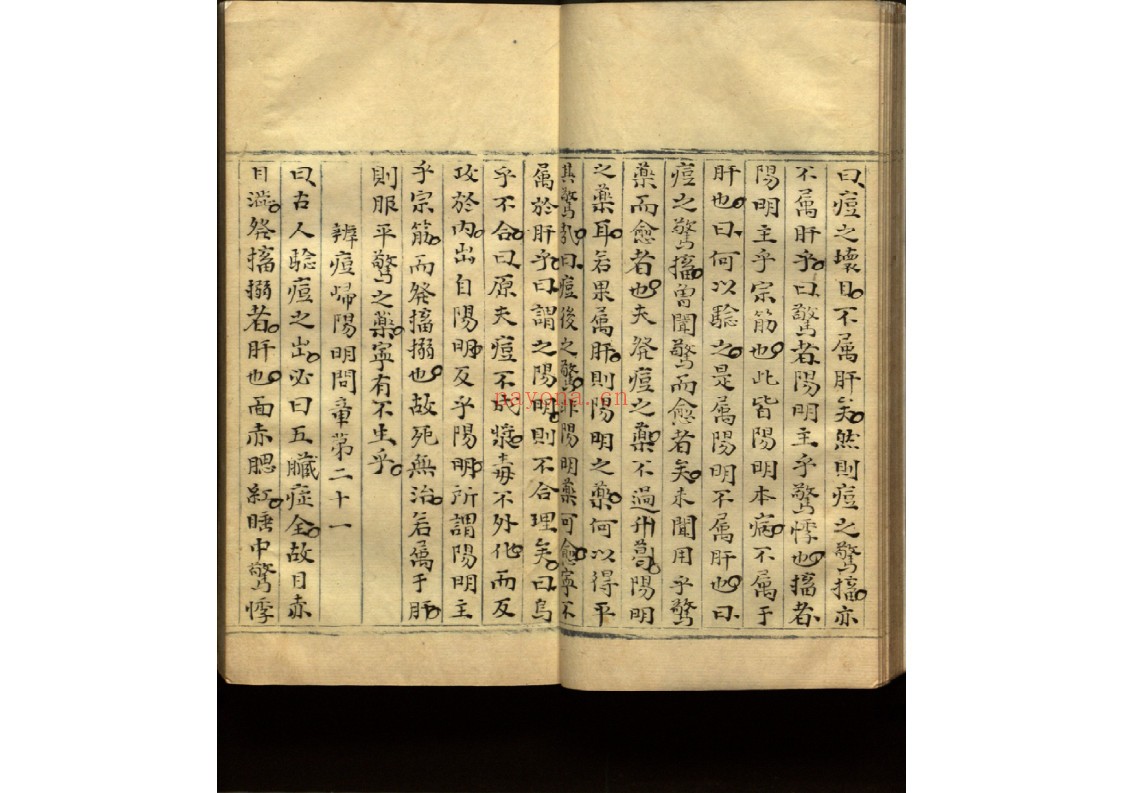 曰痘之壞目不属肝矣然則痘之驚搐亦
不属肝乎曰驚者陽明主乎驚悸也搐者
陽明主乎宗筋也此皆陽明本病不属于
肝也曰何以騐之是属陽明不属肝也曰
痘之驚搐曽聞驚而愈者矣未聞用乎驚
藥而愈者也夫発痘之藥不過升葛陽明
之藥耳若果属肝則陽明之藥何以得平
其驚哉曰痘後之驚非陽明藥可愈寧不
属於肝乎曰謂之陽明則不合理矣曰烏
乎不合曰原夫痘不成漿毒不外化而反
攻於内出自陽明反乎陽明所謂陽明主
乎宗筋而発搐搦也故死無治若属于肝
則服平驚之藥寧有不生乎
辨痘歸陽明問章第二十一
曰古人騐痘之出必曰五臟症全故目赤
目澁発搐搦者肝也面赤腮紅睡中驚悸
nayona.cn